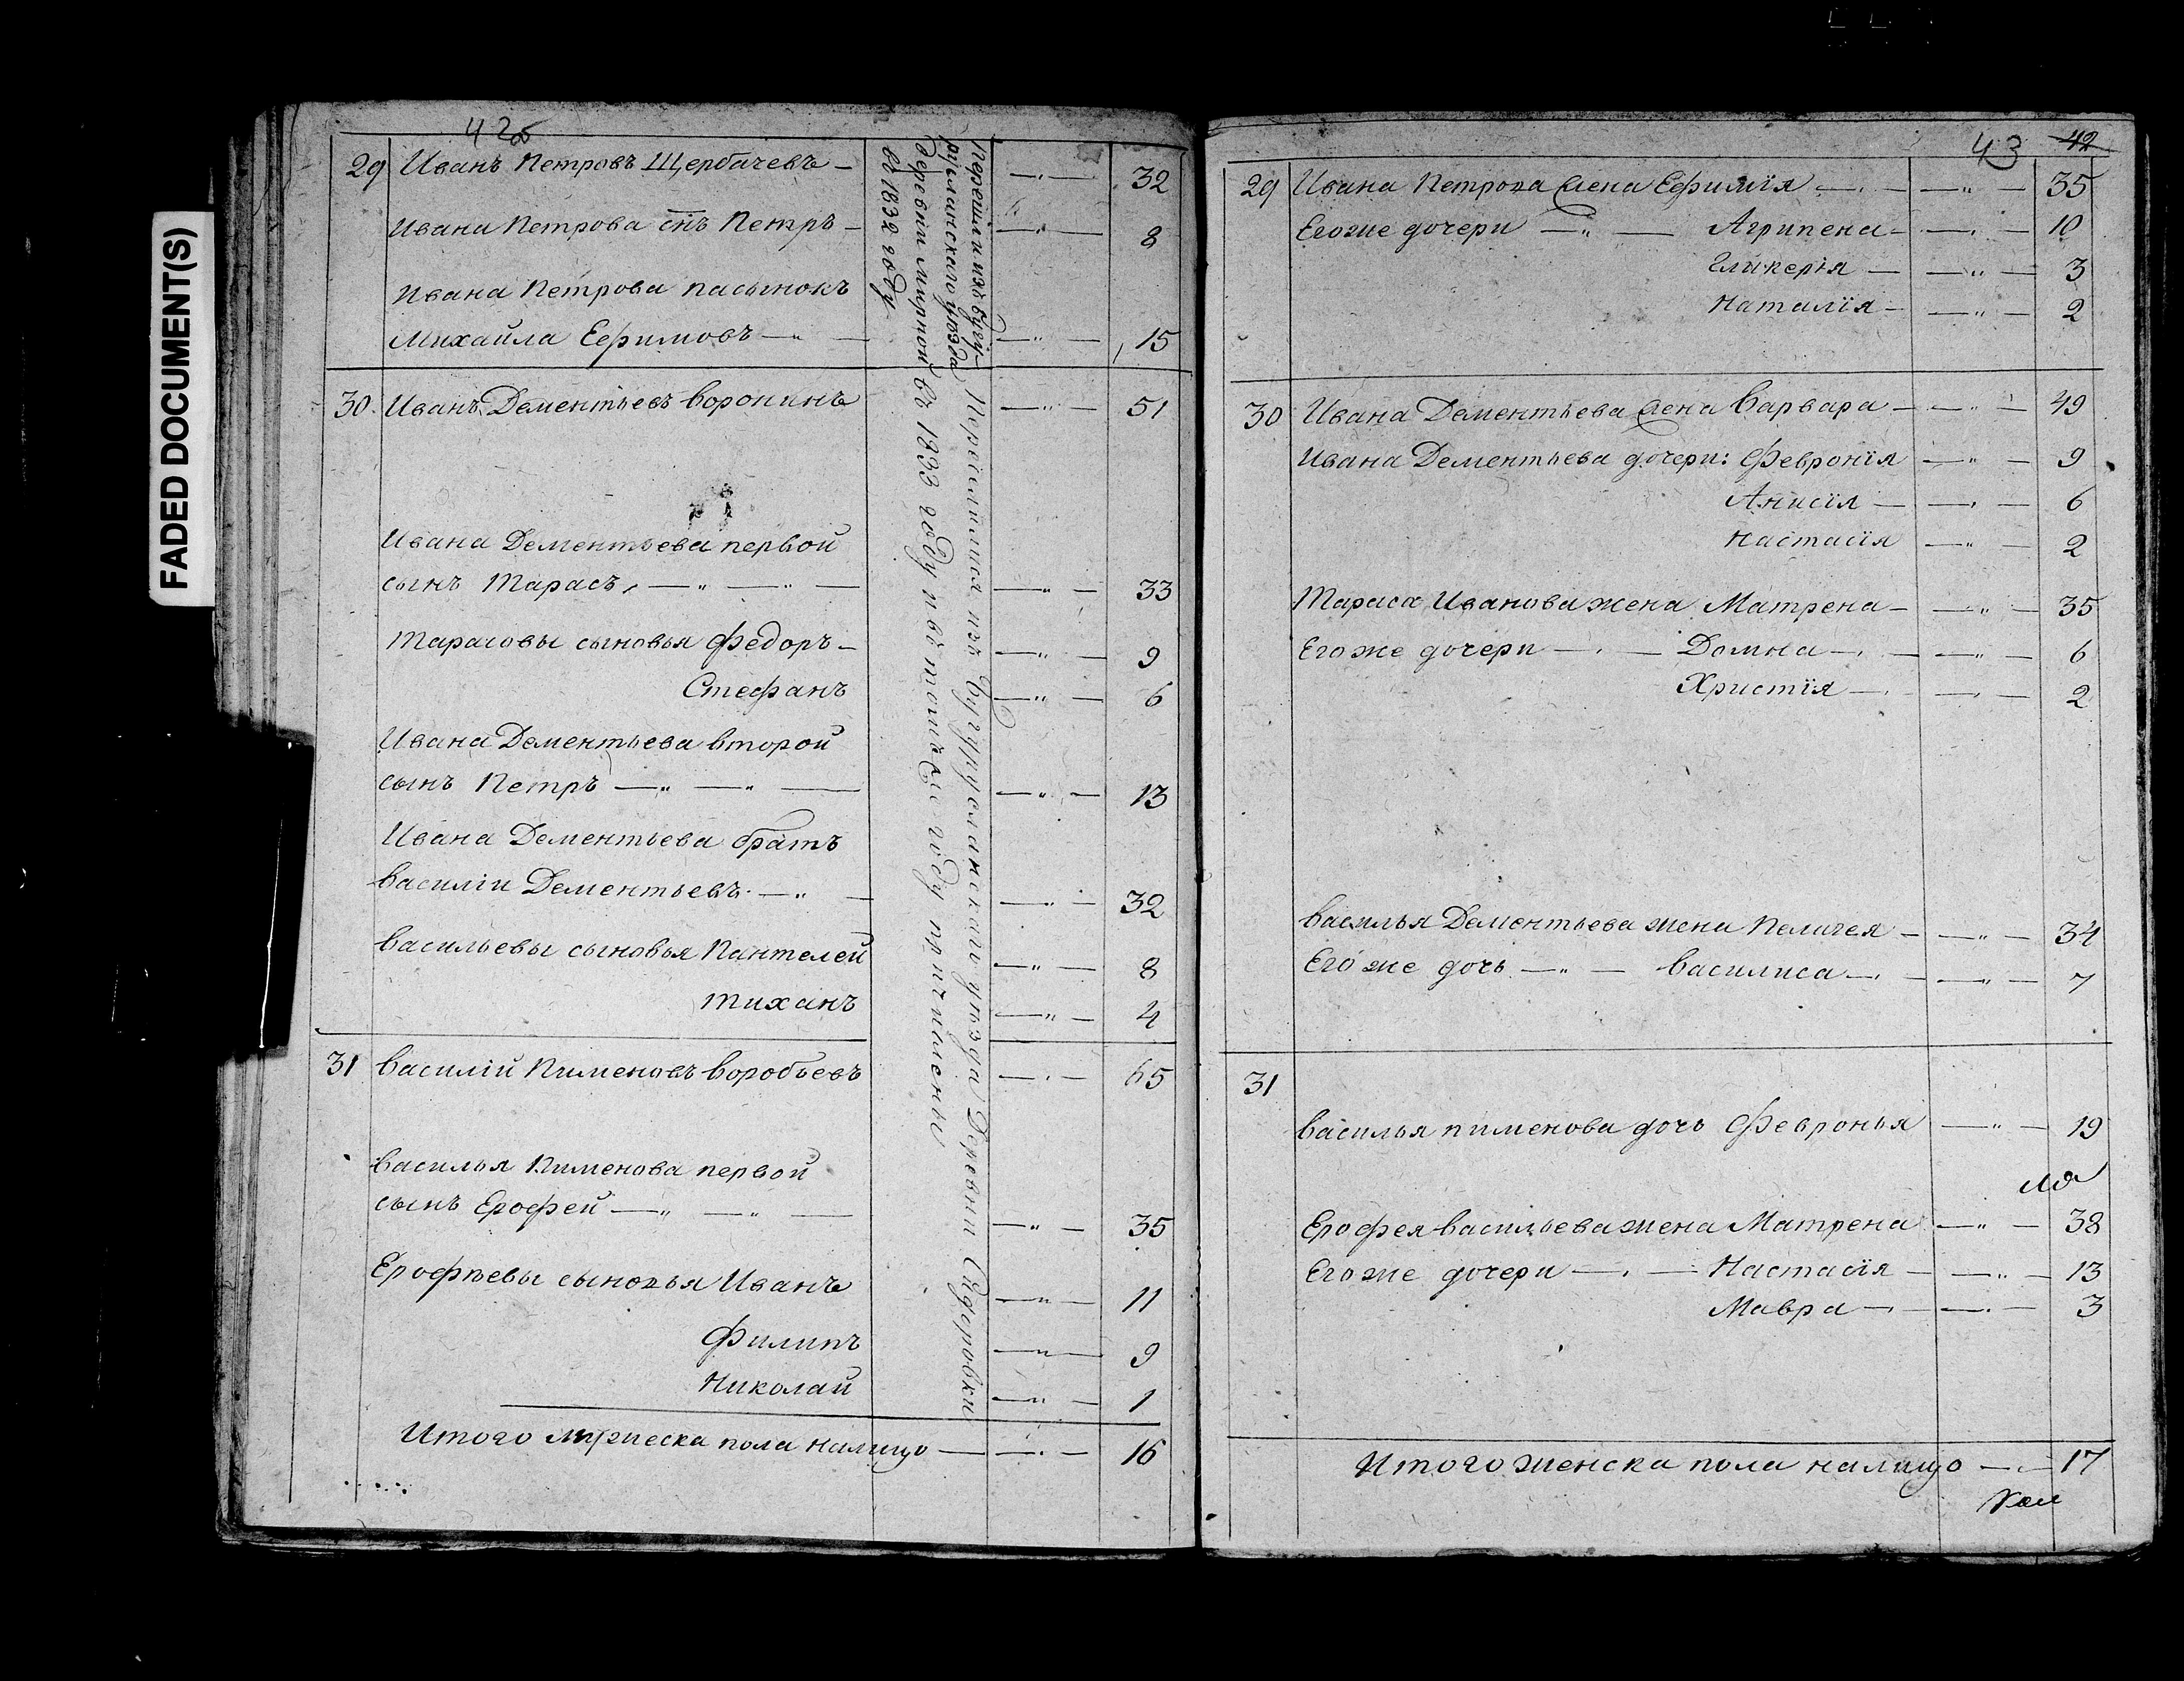 FADED DOCUMENT(S)
42об
29 Иванъ Петровъ Щербачевъ — — 32
Ивана Петрова снъ Петръ — — 8
Ивана Петрова пасынокъ
Михайла Ефимовъ — — 15
30 Иванъ Дементьевъ Воронинъ — 51
Ивана Дементьева первой
сынъ Тарасъ — — 33
Тарасовы сыновья Федоръ — — 9
Стефанъ — 6
Ивана Дементьева второй
сынъ Петръ — — 13
Ивана Дементьева братъ
Василіи Дементьевъ — — 32
Васильевы сыновья Пантелей — 8
Тиханъ — 4
31 Василій Пименовъ Воробьевъ — 65
Василья Пименова первой
сынъ Ерофей — — 35
Ерофѣевы сыновья Иванъ — 11
Филипъ — 9
Николай — 1
Итого мужеска пола налицо — — 16
Перешли изъ Бугу-
русланскаго уѣзда
деревни Мирной
въ 1832 году
Переселился изъ Бугурусланскаго уѣзда Деревни Сидоровки
въ 1833 году и въ томъ же году причислены
43 42
29 Ивана Петрова жена Ефимія — — 35
Егоже дочери — Агрипена — — 10
Гликерія — — 3
Наталія — — 2
30 Ивана Дементьева жена Варвара — — 49
Ивана Дементьева дочери: Февронія — 9
Анисія — — 6
Настасія — 2
Тараса Иванова жена Матрена — — 35
Егоже дочери — Домна — — 6
Христія — — 2
Василья Дементьева жена Пелагея — — 34
Его же дочь — Василиса — — 7
31
Василья Пименова дочь Февронья — 19
Ерофея Васильева жена Матрена — 38
Егоже дочери — Настасія — — 13
Мавра — — 3
Итого женска пола налицо — 17